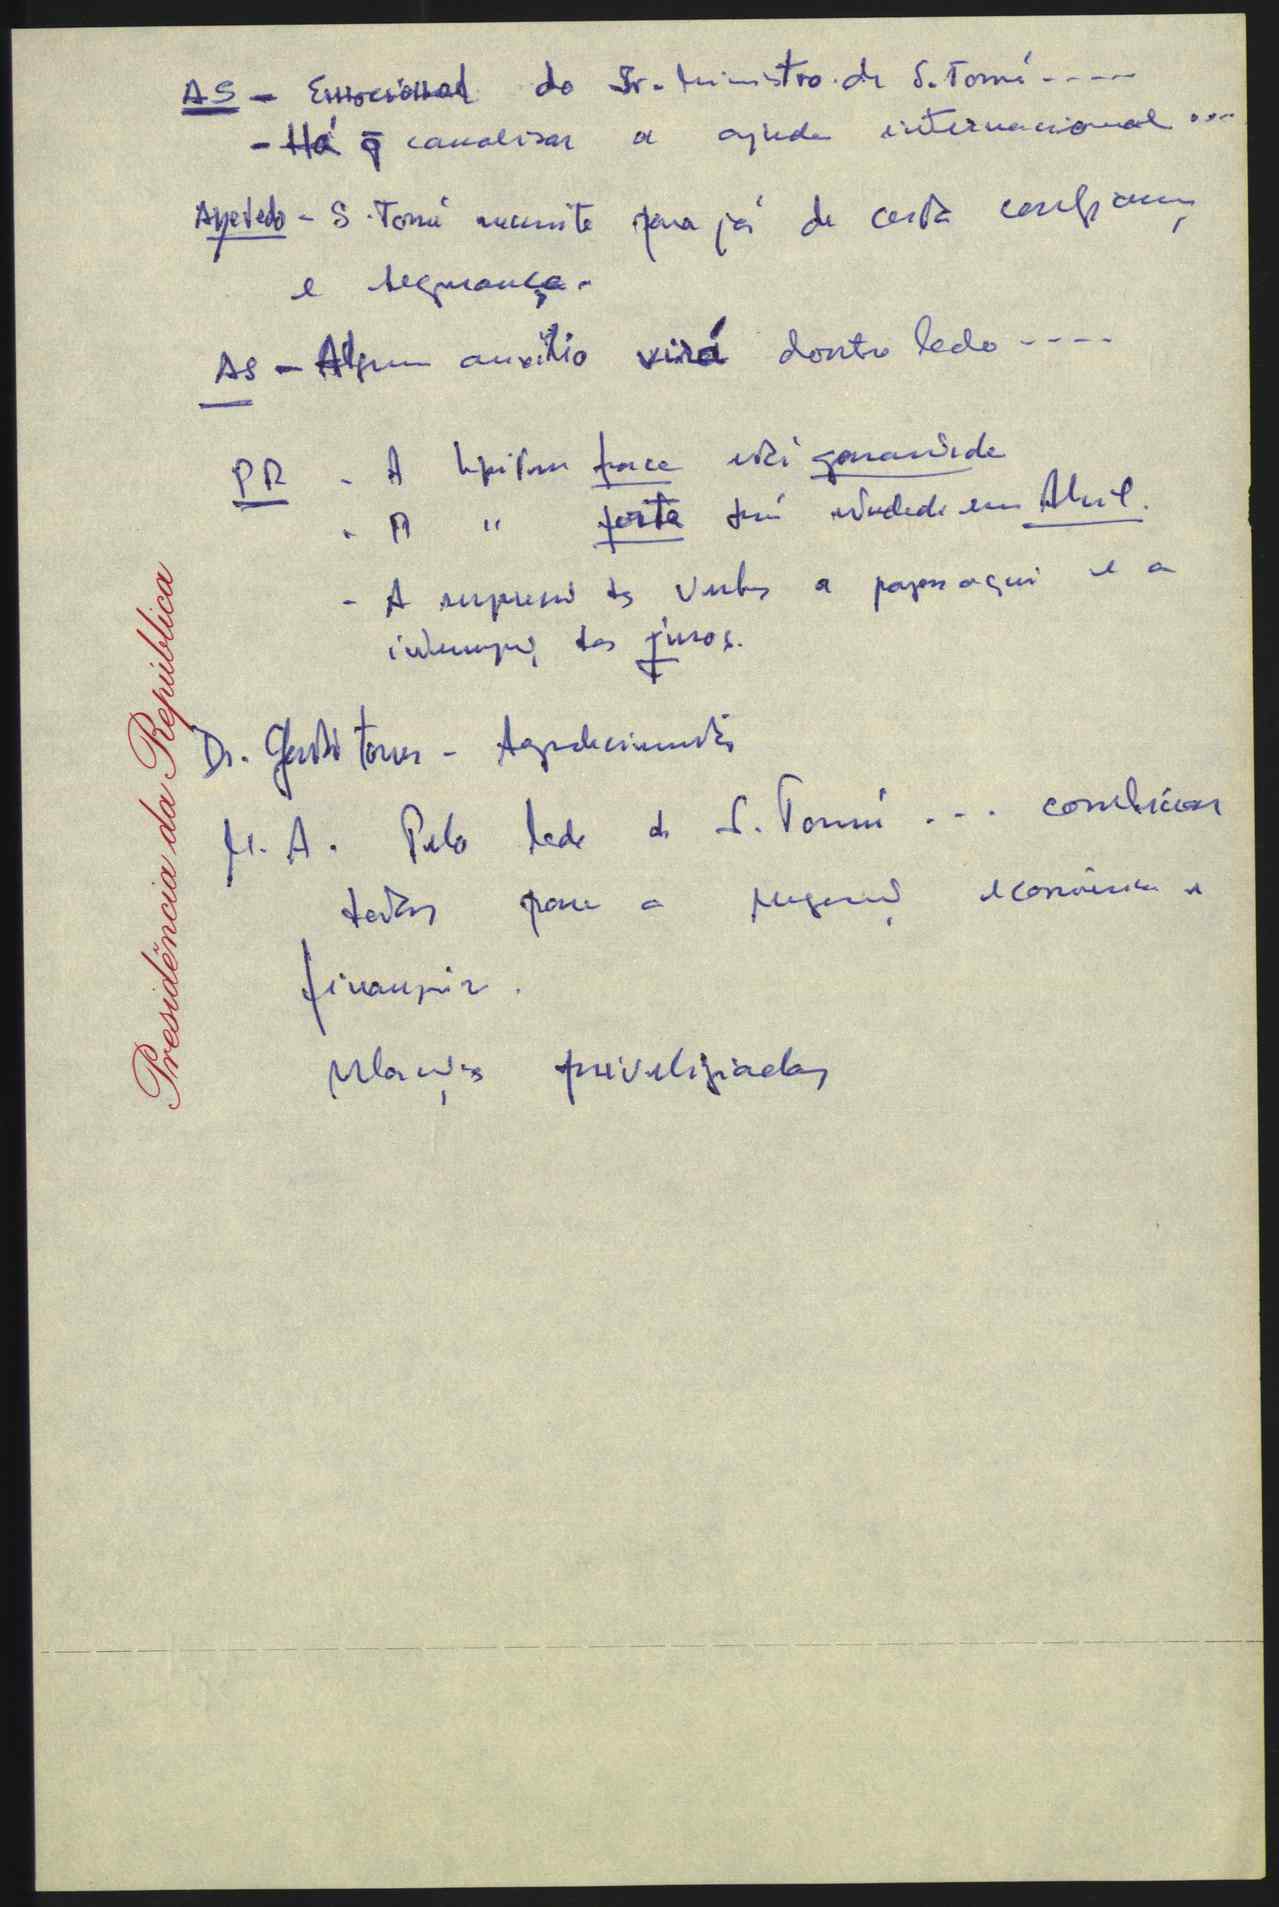 AS - Emocional do Sr. Ministro de S. Tomé ----
- Há q̄ canalizar a ajuda internacional ...
Azevedo - S. Tomé necessita para já de certa confiança
e segurança.
AS - Algum auxílio virá doutro lado ----
PR - A hipótese fraca está garantida
- A " forte será estudada em Abril.
- A suspensão das verbas a pagar aqui e a
interrupç. dos juros.
Dr. Gastão Torres - Agradecimentos
M. A. Pelo lado de S. Tomé ... condições
todas para a economica e
financeira.
relações priveligiadas
Presidência da República